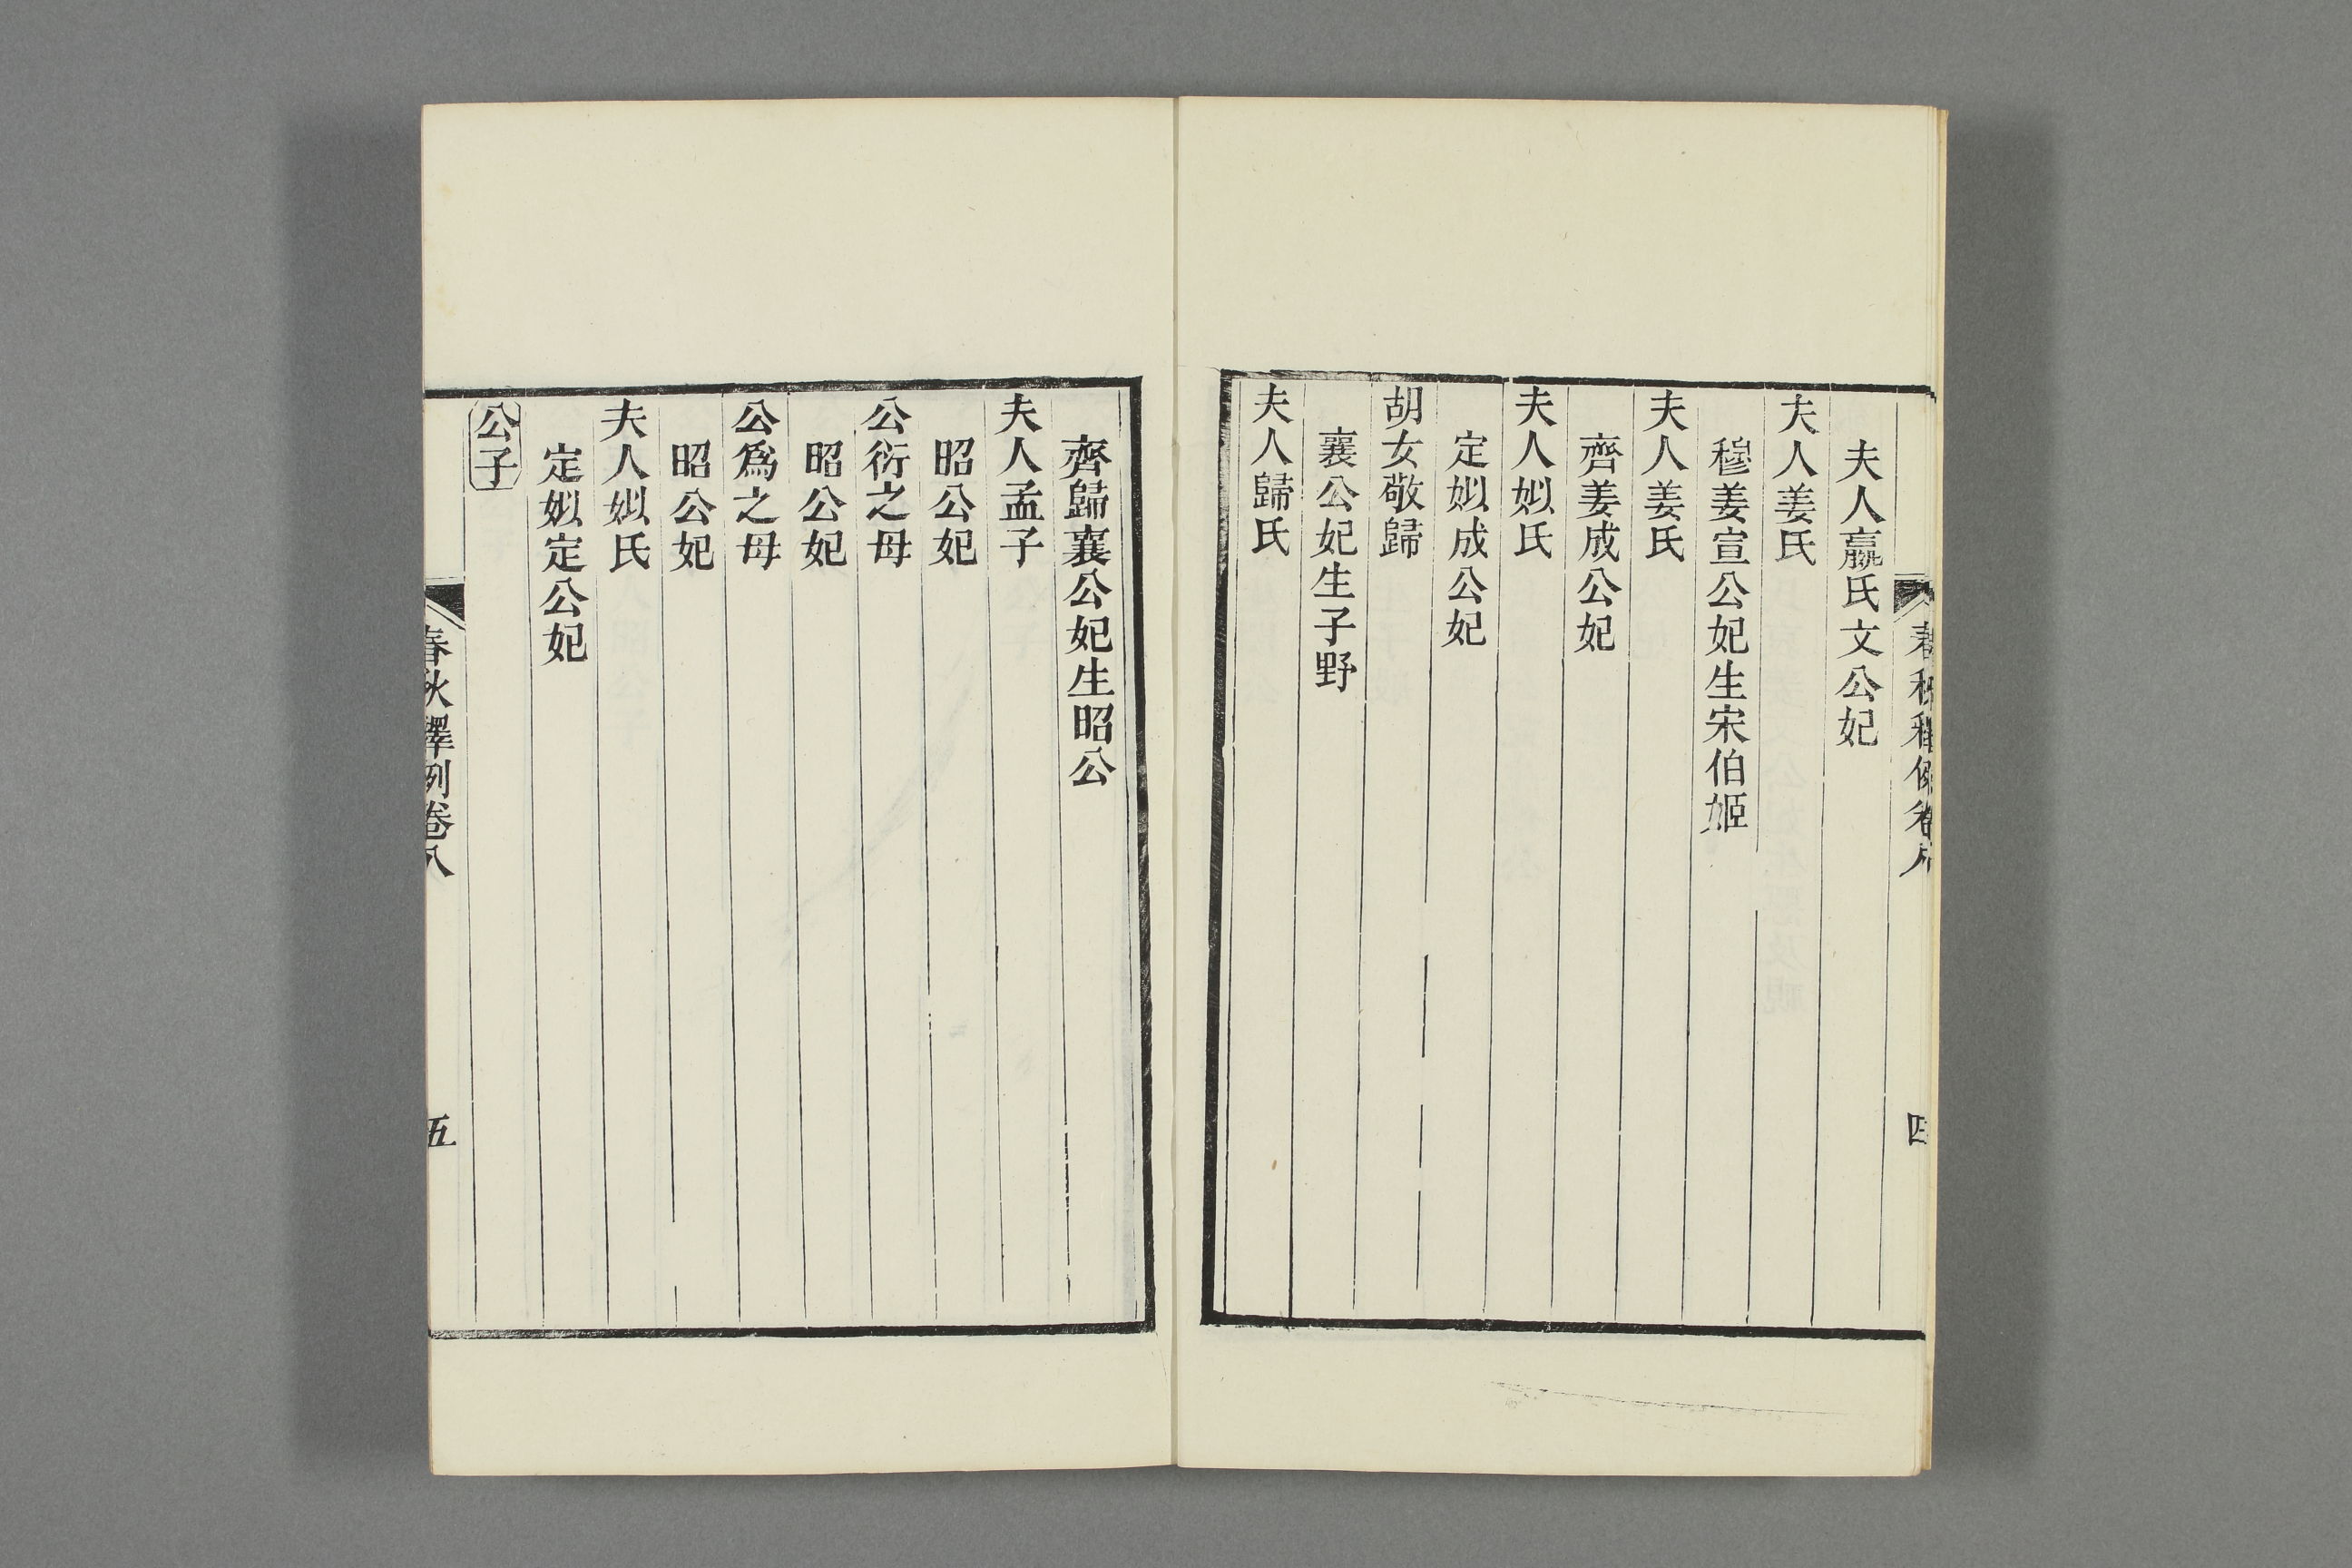 春秋釋例卷八
四
夫人嬴氏文公妃
夫人姜氏
穆姜宣公妃生宋伯姬
夫人姜氏
齊姜成公妃
夫人姒氏
定姒成公妃
胡女敬歸
襄公妃生子野
夫人歸氏
齊歸襄公妃生昭公
夫人孟子
昭公妃
公衍之母
昭公妃
公爲之母
昭公妃
夫人姒氏
定姒定公妃
公子
春秋釋例卷八
五